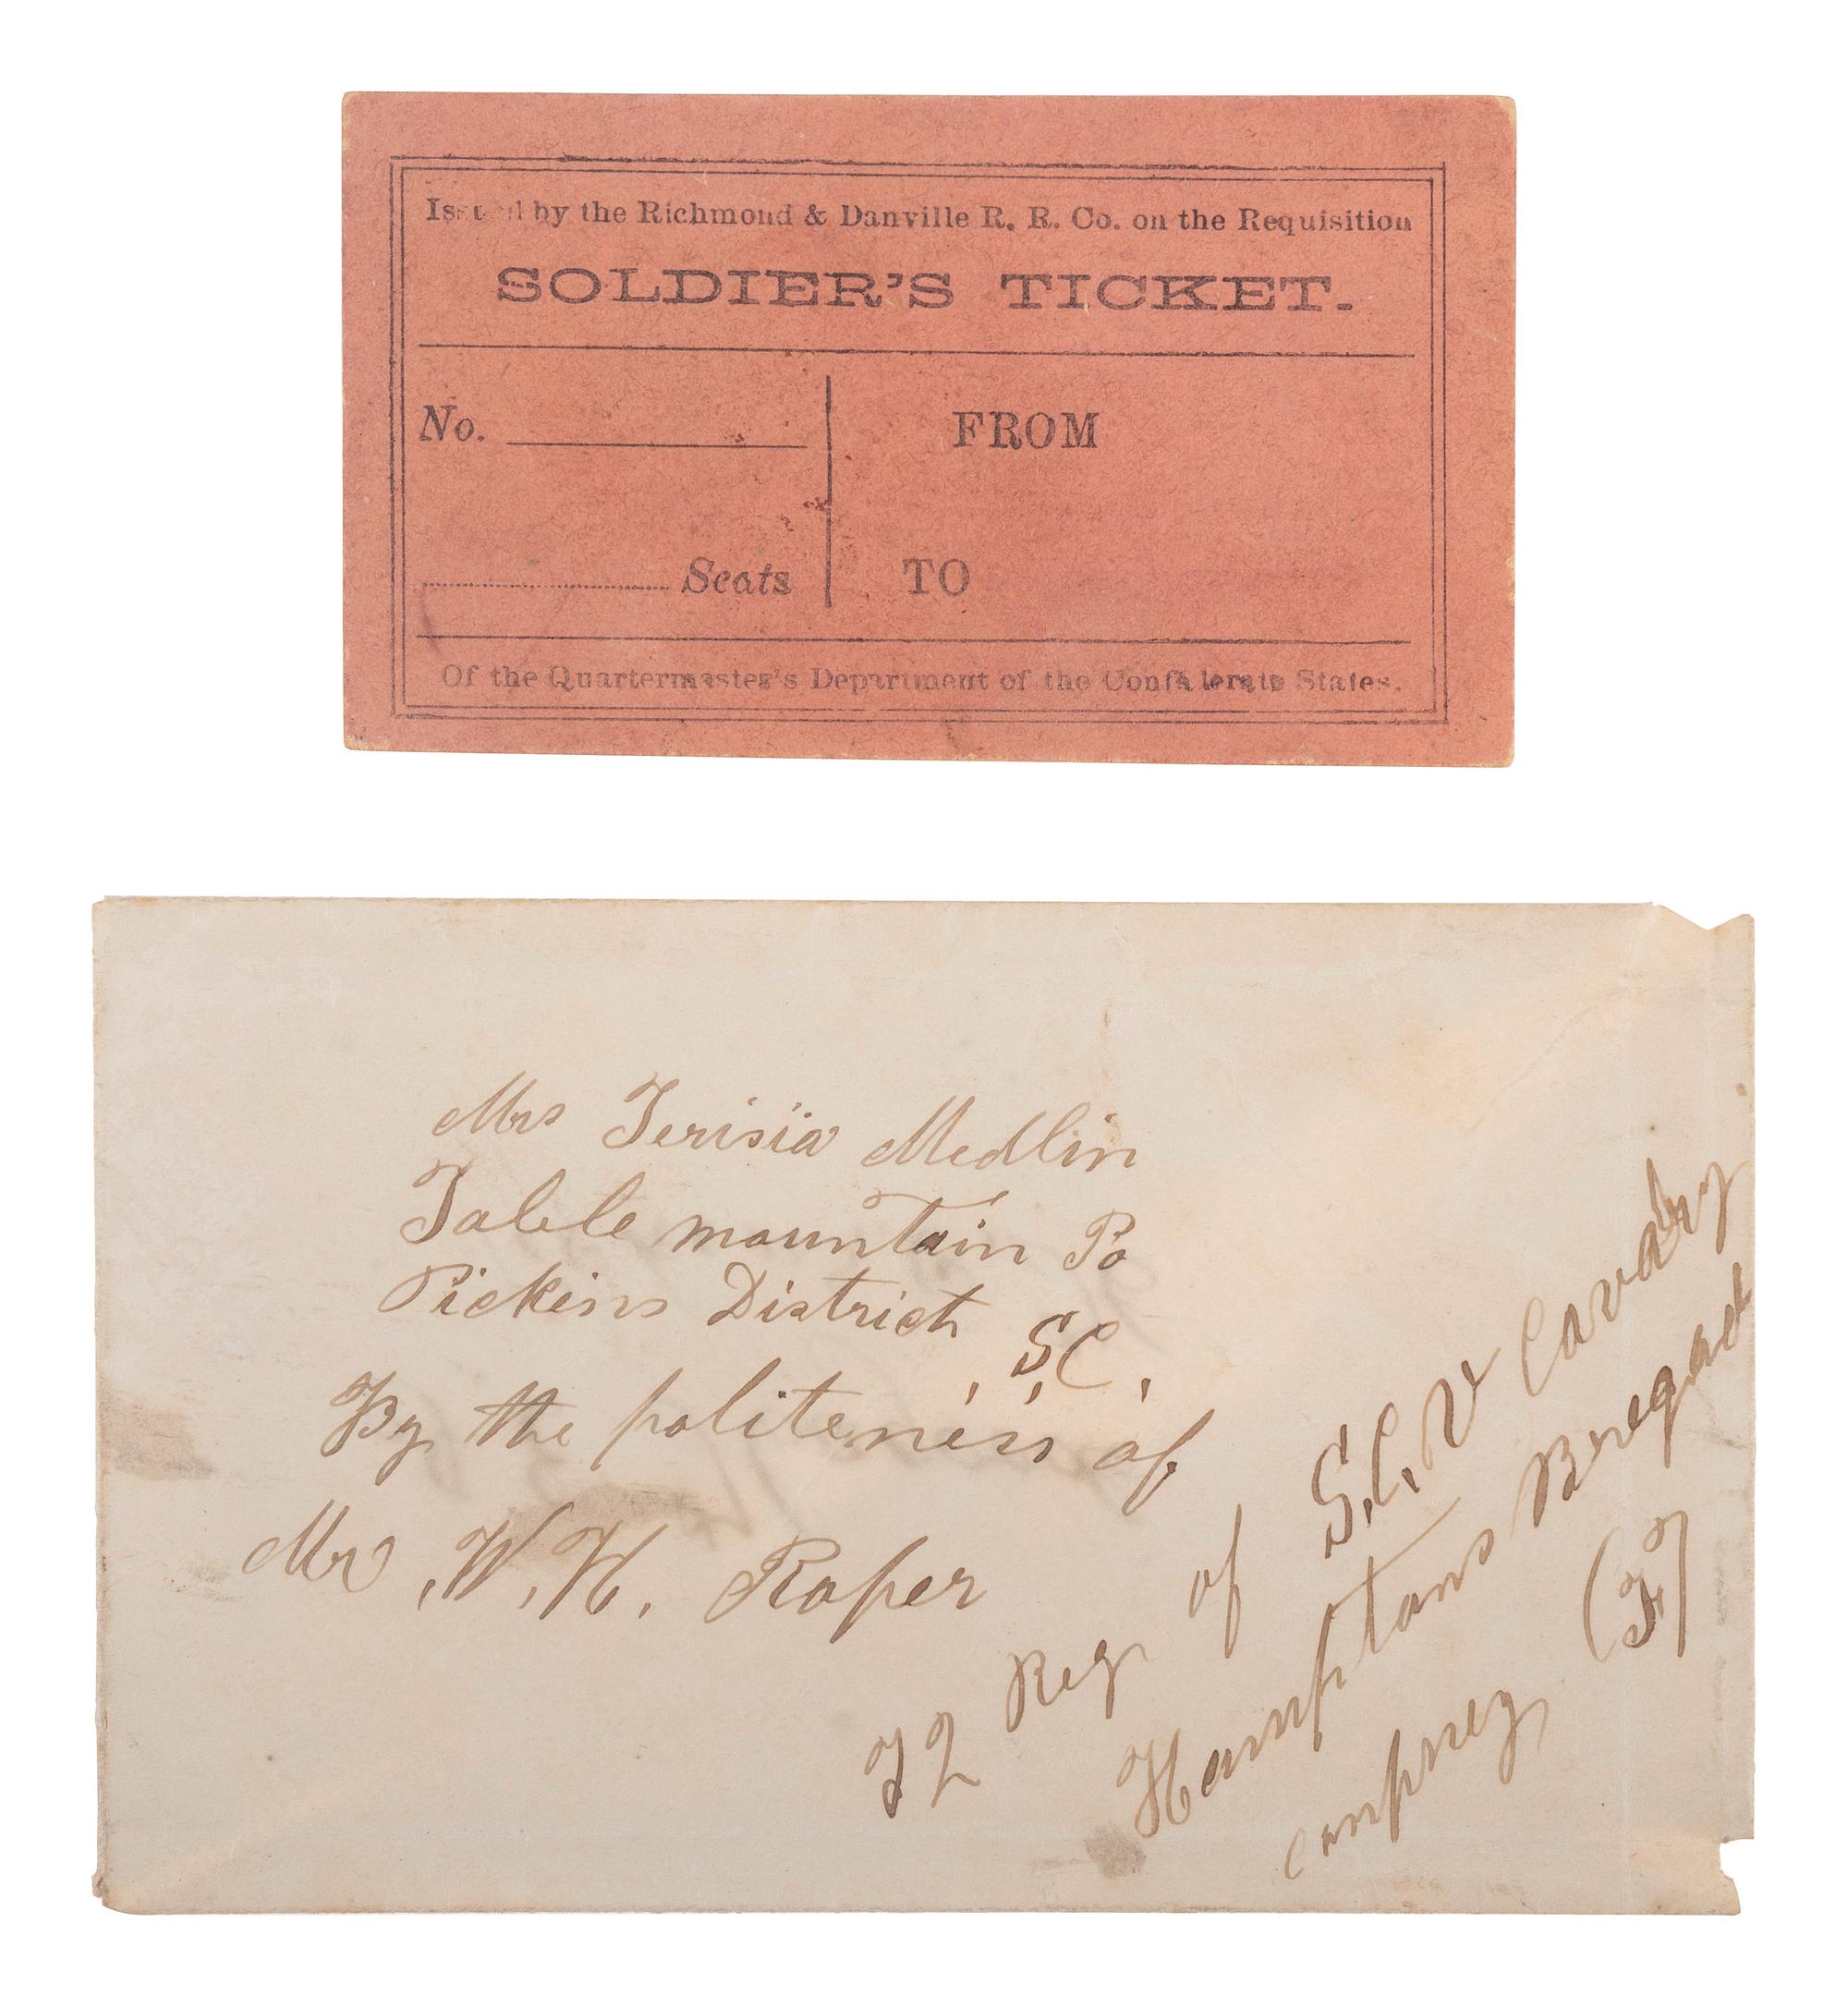 Issued by the Richmond & Danville R. R. Co. on the Requisition
SOLDIER'S TICKET.
No.
FROM
Seats
TO
Of the Quartermaster's Department of the Confederate States.
Mrs Terisia Medlin
Table mountain Po
Pickins District, S,C,
By the politeness of
Mr ,W,H, Roper
Reg of S,C,V Cavalry
Hamptons Bregade
compney, (F)